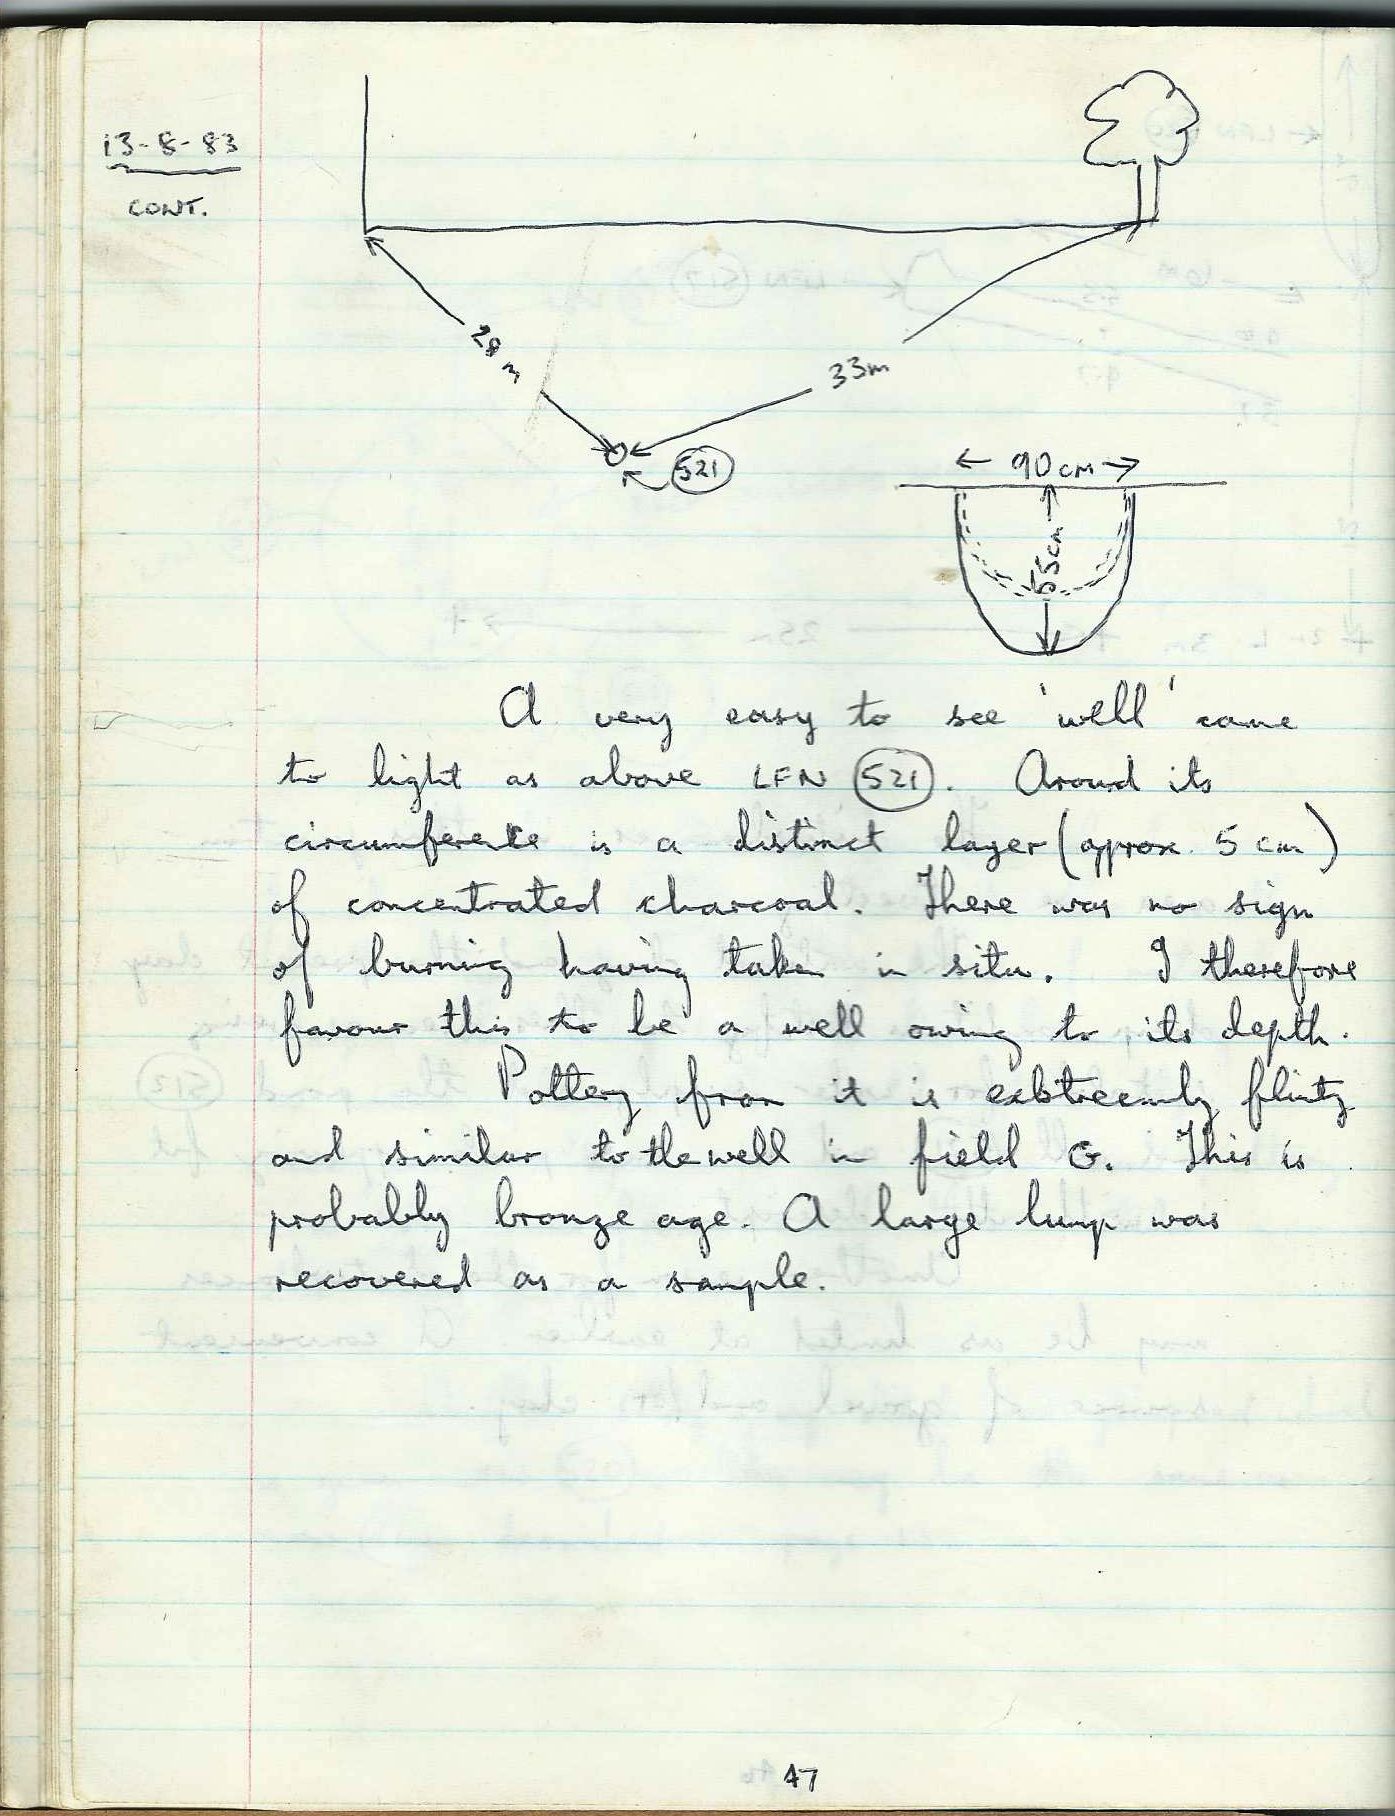 13-8-83
CONT.
28m
33m
521
90cm
55cm
A very easy to see 'well' came
to light as above LFN 521. Around its
circumference is a distinct layer (approx. 5 cm)
of concentrated charcoal. There was no sign
of burning having taken in situ. I therefore
favour this to be a well owing to its depth.
Pottery from it is exbtreemly flinty
and similar to the well in field G. This is
probably bronze age. A large lump was
recovered as a sample.
47